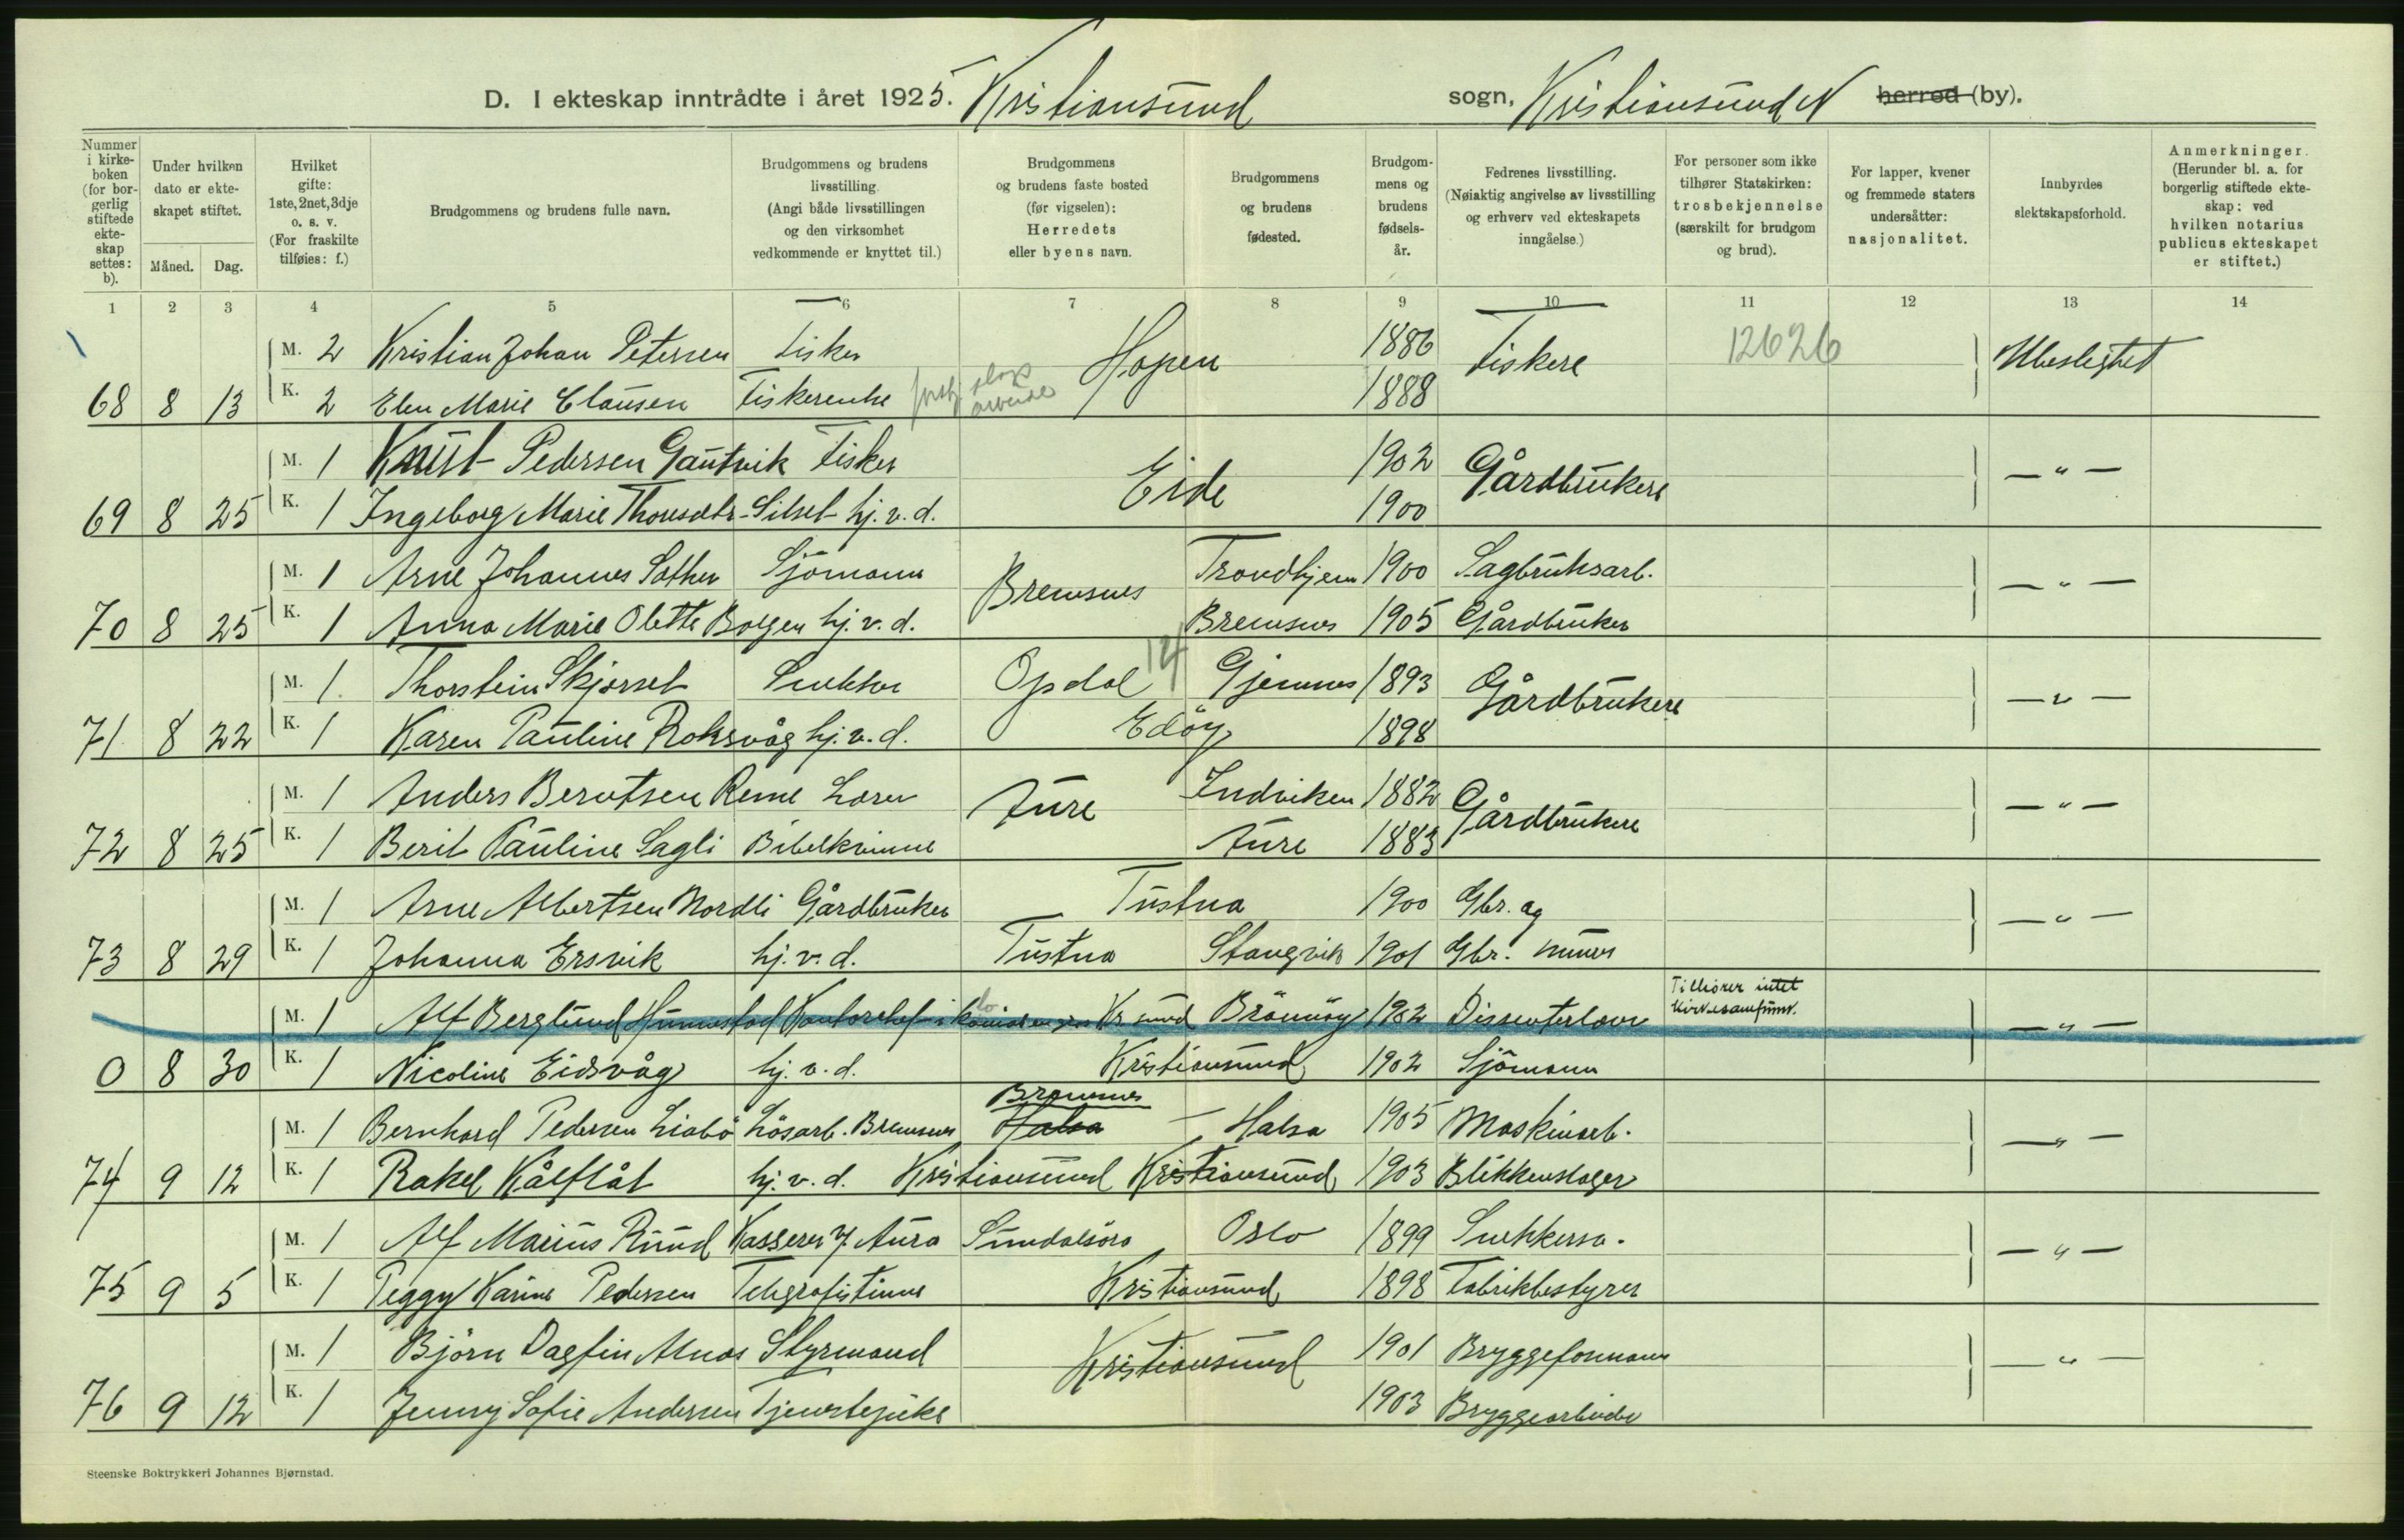 D. I ekteskap inntrådte i året 1925. Kristiansund sogn, Kristiansund N herred (by).
Nummer i kirkeboken (for borgerlig stiftede ekteskap settes: b).
Under hvilken dato er ekteskapet stiftet.
Måned. Dag.
Hvilket gifte: 1ste, 2net, 3dje o. s. v. (For fraskilte tilføies: f.)
Brudgommens og brudens fulle navn.
Brudgommens og brudens livsstilling. (Angi både livsstillingen og den virksomhet vedkommende er knyttet til.)
Brudgommens og brudens faste bosted (før vigselen): Herredets eller byens navn.
Brudgommens og brudens fødested.
Brudgommens og brudens fødselsår.
Fedrenes livsstilling. (Nøiaktig angivelse av livsstilling og erhverv ved ekteskapets inngåelse.)
For personer som ikke tilhører Statskirken: trosbekjennelse (særskilt for brudgom og brud).
For lapper, kvener og fremmede staters undersåtter: nasjonalitet.
Innbyrdes slektskapsforhold.
Anmerkninger. (Herunder bl. a. for borgerlig stiftede ekteskap: ved hvilken notarius publicus ekteskapet er stiftet.)
1 2 3 4 5 6 7 8 9 10 11 12 13 14
M. 2 Kristian Johan Petersen Fisker Hopen 1886 Fiskere 12626 Ubeslegtet
68 8 13 K. 2 Elen Marie Clausen Fiskerenke 1888
M. 1 Knut Pedersen Gautvik Fisker Eide 1902 Gårdbrukere — " —
69 8 25 K. 1 Ingeborg Marie Thoresdtr. Silset hj. v. d. 1900
M. 1 Arne Johannes Sæther Sjömann Bremsnes Trondhjem 1900 Sagbruksarb. — " —
70 8 25 K. 1 Anna Marie Olette Borgen hj. v. d. Bremsnes 1905 Gårdbruker
M. 1 Thorstein Skjerset Snekker Opdal 14 Gjemnes 1893 Gårdbrukere — " —
71 8 22 K. 1 Karen Pauline Roksvåg hj. v. d. Edöy 1898
M. 1 Anders Berntsen Reme Lærer Aure Indviken 1882 Gårdbrukere — " —
72 8 25 K. 1 Berit Pauline Sagli Bibelkvinne Aure 1883
M. 1 Arne Albertsen Nordli Gårdbruker Tustna 1900 Gbr. og — " —
73 8 29 K. 1 Johanna Ersvik hj. v. d. Tustna Stangvik 1901 Gbr. murer
M. 1 Alf Berglund Hunnestad Kontorchef i Kr.sund Brönnöy 1902 Dissenterlærer Tilhörer intet kirkesamfund. — " —
0 8 30 K. 1 Nicoline Eidsvåg hj. v. d. Kristiansund 1902 Sjömann
M. 1 Bernhard Pedersen Liabö Lösarb. Bremsnes Bremsnes Halsa — Halsa 1905 Maskinarb. — " —
74 9 12 K. 1 Rakel Kålflåt hj. v. d. Kristiansund Kristiansund 1903 Blikkenslager
M. 1 Alf Marius Ruud Kasserer v. Aura Sundalsöra Oslo 1899 Snekkersv. — " —
75 9 5 K. 1 Peggy Karine Pedersen Telegrafistinne Kristiansund 1898 Fabrikbestyrer
M. 1 Björn Dagfin Alnæs Styrmand Kristiansund 1901 Bryggeformann — " —
76 9 12 K. 1 Jenny Sofie Andersen Tjenestepike 1903 Bryggearbeider
Steenske Boktrykkeri Johannes Bjørnstad.